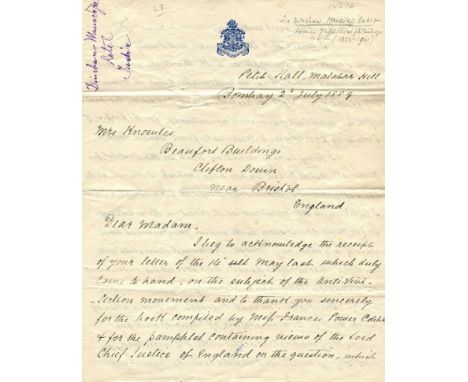 LS
INDIA
Sir Dinshaw Manockjee Petit
Dinshaw Manockjee
Petit
India
Petit Hall, Malabar Hill
Bombay 2d July 1889
Mrs. Knowles,
Beaufort Buildings
Clifton Down
near Bristol
England.
Dear Madam,
I beg to acknowledge the receipt
of your letter of the 14 ult May last which duly
came to hand, on the subject of the Anti-Vivi-
section movement and to thank you sincerely
for the book compiled by Miss Frances Power Cobbe
& for the pamphlet containing views of the Lord
Chief Justice of England on the question, which